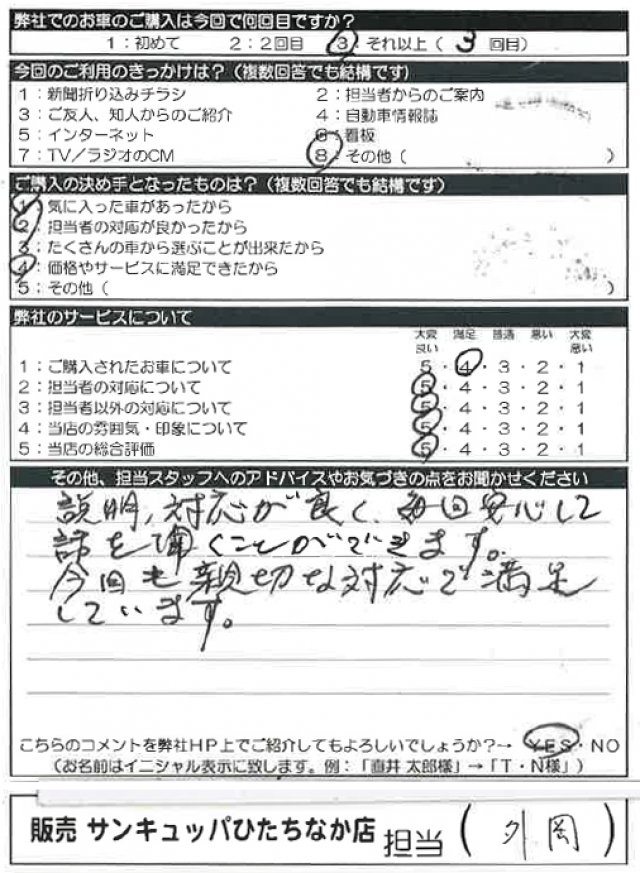 弊社でのお車のご購入は今回で何回目ですか？
1：初めて　2：2回目　3：それ以上（ 3 回目）
今回のご利用のきっかけは？（複数回答でも結構です）
1：新聞折り込みチラシ　2：担当者からのご案内
3：ご友人、知人からのご紹介　4：自動車情報誌
5：インターネット　6：看板
7：TV／ラジオのCM　8：その他（　　　）
ご購入の決め手となったものは？（複数回答でも結構です）
1：気に入った車があったから
2：担当者の対応が良かったから
3：たくさんの車から選ぶことが出来たから
4：価格やサービスに満足できたから
5：その他（　　　）
弊社のサービスについて
大変良い　満足　普通　悪い　大変悪い
1：ご購入されたお車について　5・4・3・2・1
2：担当者の対応について　5・4・3・2・1
3：担当者以外の対応について　5・4・3・2・1
4：当店の雰囲気・印象について　5・4・3・2・1
5：当店の総合評価　5・4・3・2・1
その他、担当スタッフへのアドバイスやお気づきの点をお聞かせください
説明，対応が良く、毎回安心して
話を聞くことができます。
今回も親切な対応で満足
しています。
こちらのコメントを弊社HP上でご紹介してもよろしいでしょうか？→　YES・NO
（お名前はイニシャル表示に致します。例：「直井 太郎様」→「T・N様」）
販売 サンキュッパひたちなか店 担当（ 外岡 ）